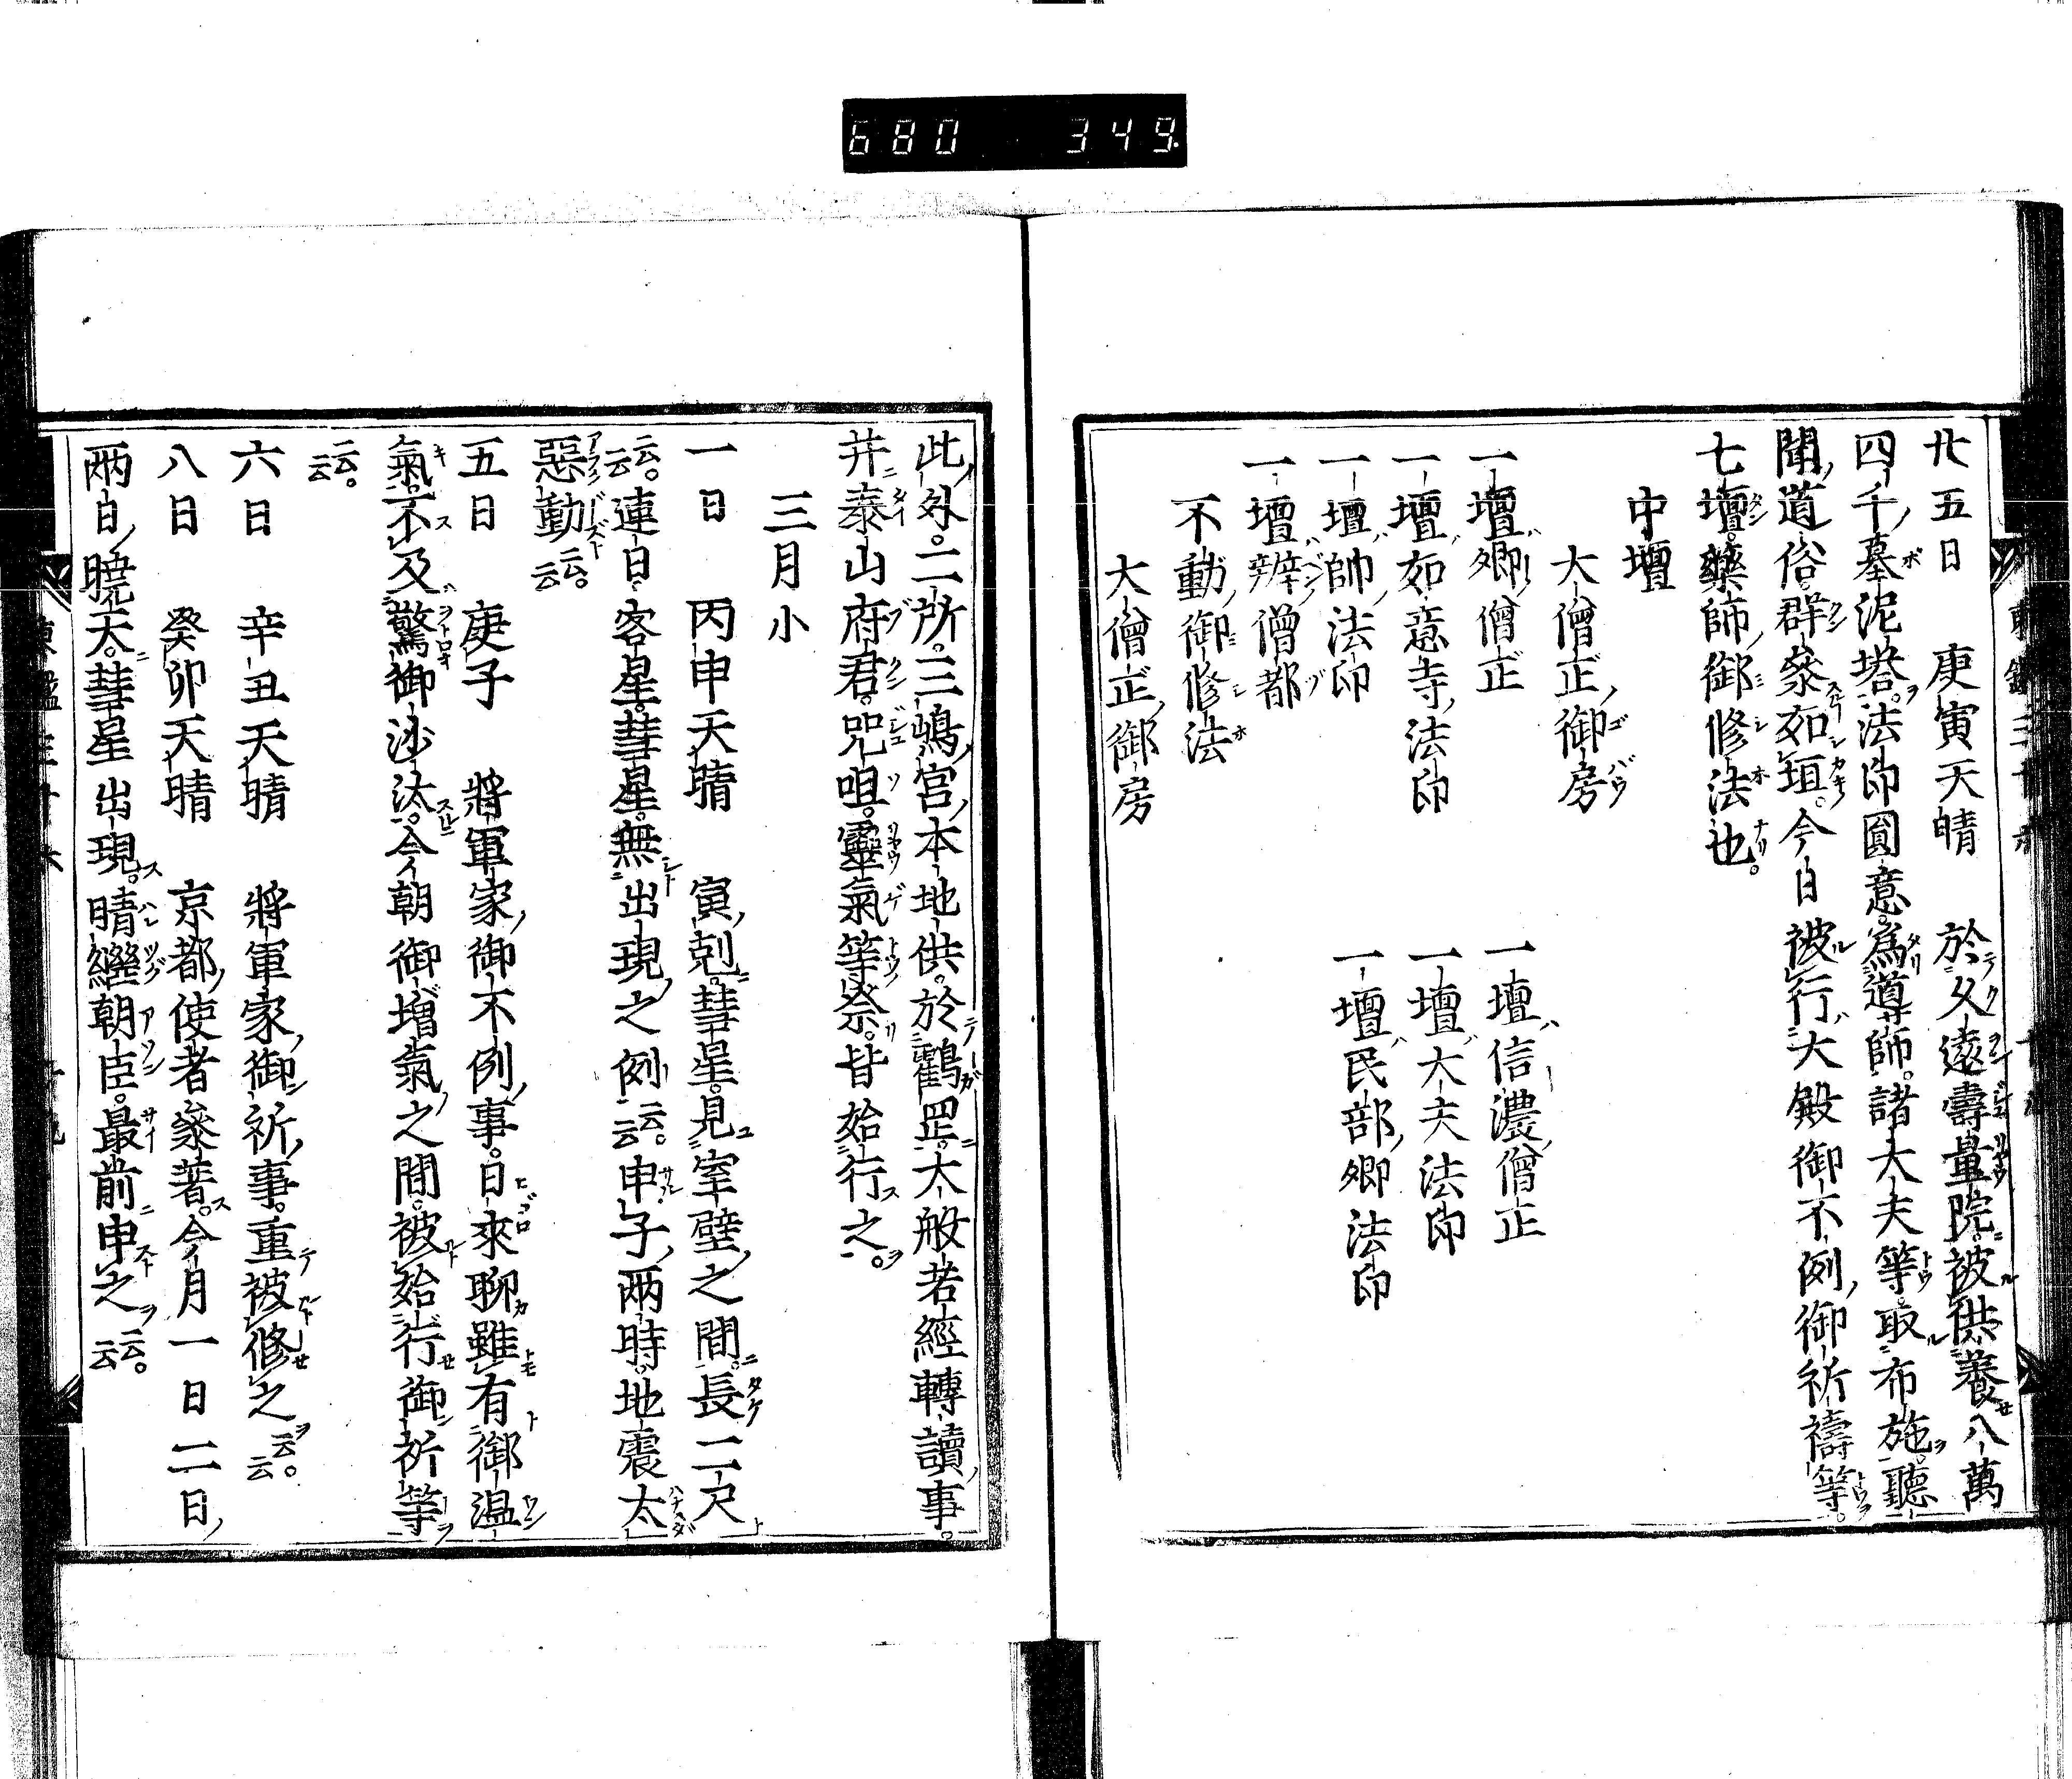 680 349
廿五日 庚寅天晴 於久遠壽量院。被供養八萬
四千墓泥塔。法印圓意。爲導師。諸大夫等。取布施。聽
聞道俗。群參如垣。今日被行大殿御不例御祈禱等。
七壇。藥師御修法也。
中壇
大僧正御房
一壇卿僧正 一壇信濃僧正
一壇如意寺法印 一壇大夫法印
一壇帥法印 一壇民部卿法印
一壇辨僧都
不動御修法
大僧正御房
此外。二所。三嶋宮本地供。於鶴罡。大般若經轉讀事。
并泰山府君。咒咀。靈氣等祭。皆始行之。
三月小
一日 丙申天晴 寅剋。彗星。見室壁之間。長二尺
云云。連日客星。彗星。無出現之例云云。申子兩時。地震太
惡動云云。
五日 庚子 將軍家御不例事。日來聊雖有御温
氣。不及驚御沙汰。今朝御増氣之間。被始行御祈等
云云。
六日 辛丑天晴 將軍家御祈事。重被修之云云。
八日 癸卯天晴 京都使者參著。今月一日二日
兩日曉天。彗星出現。晴繼朝臣。最前申之云云。